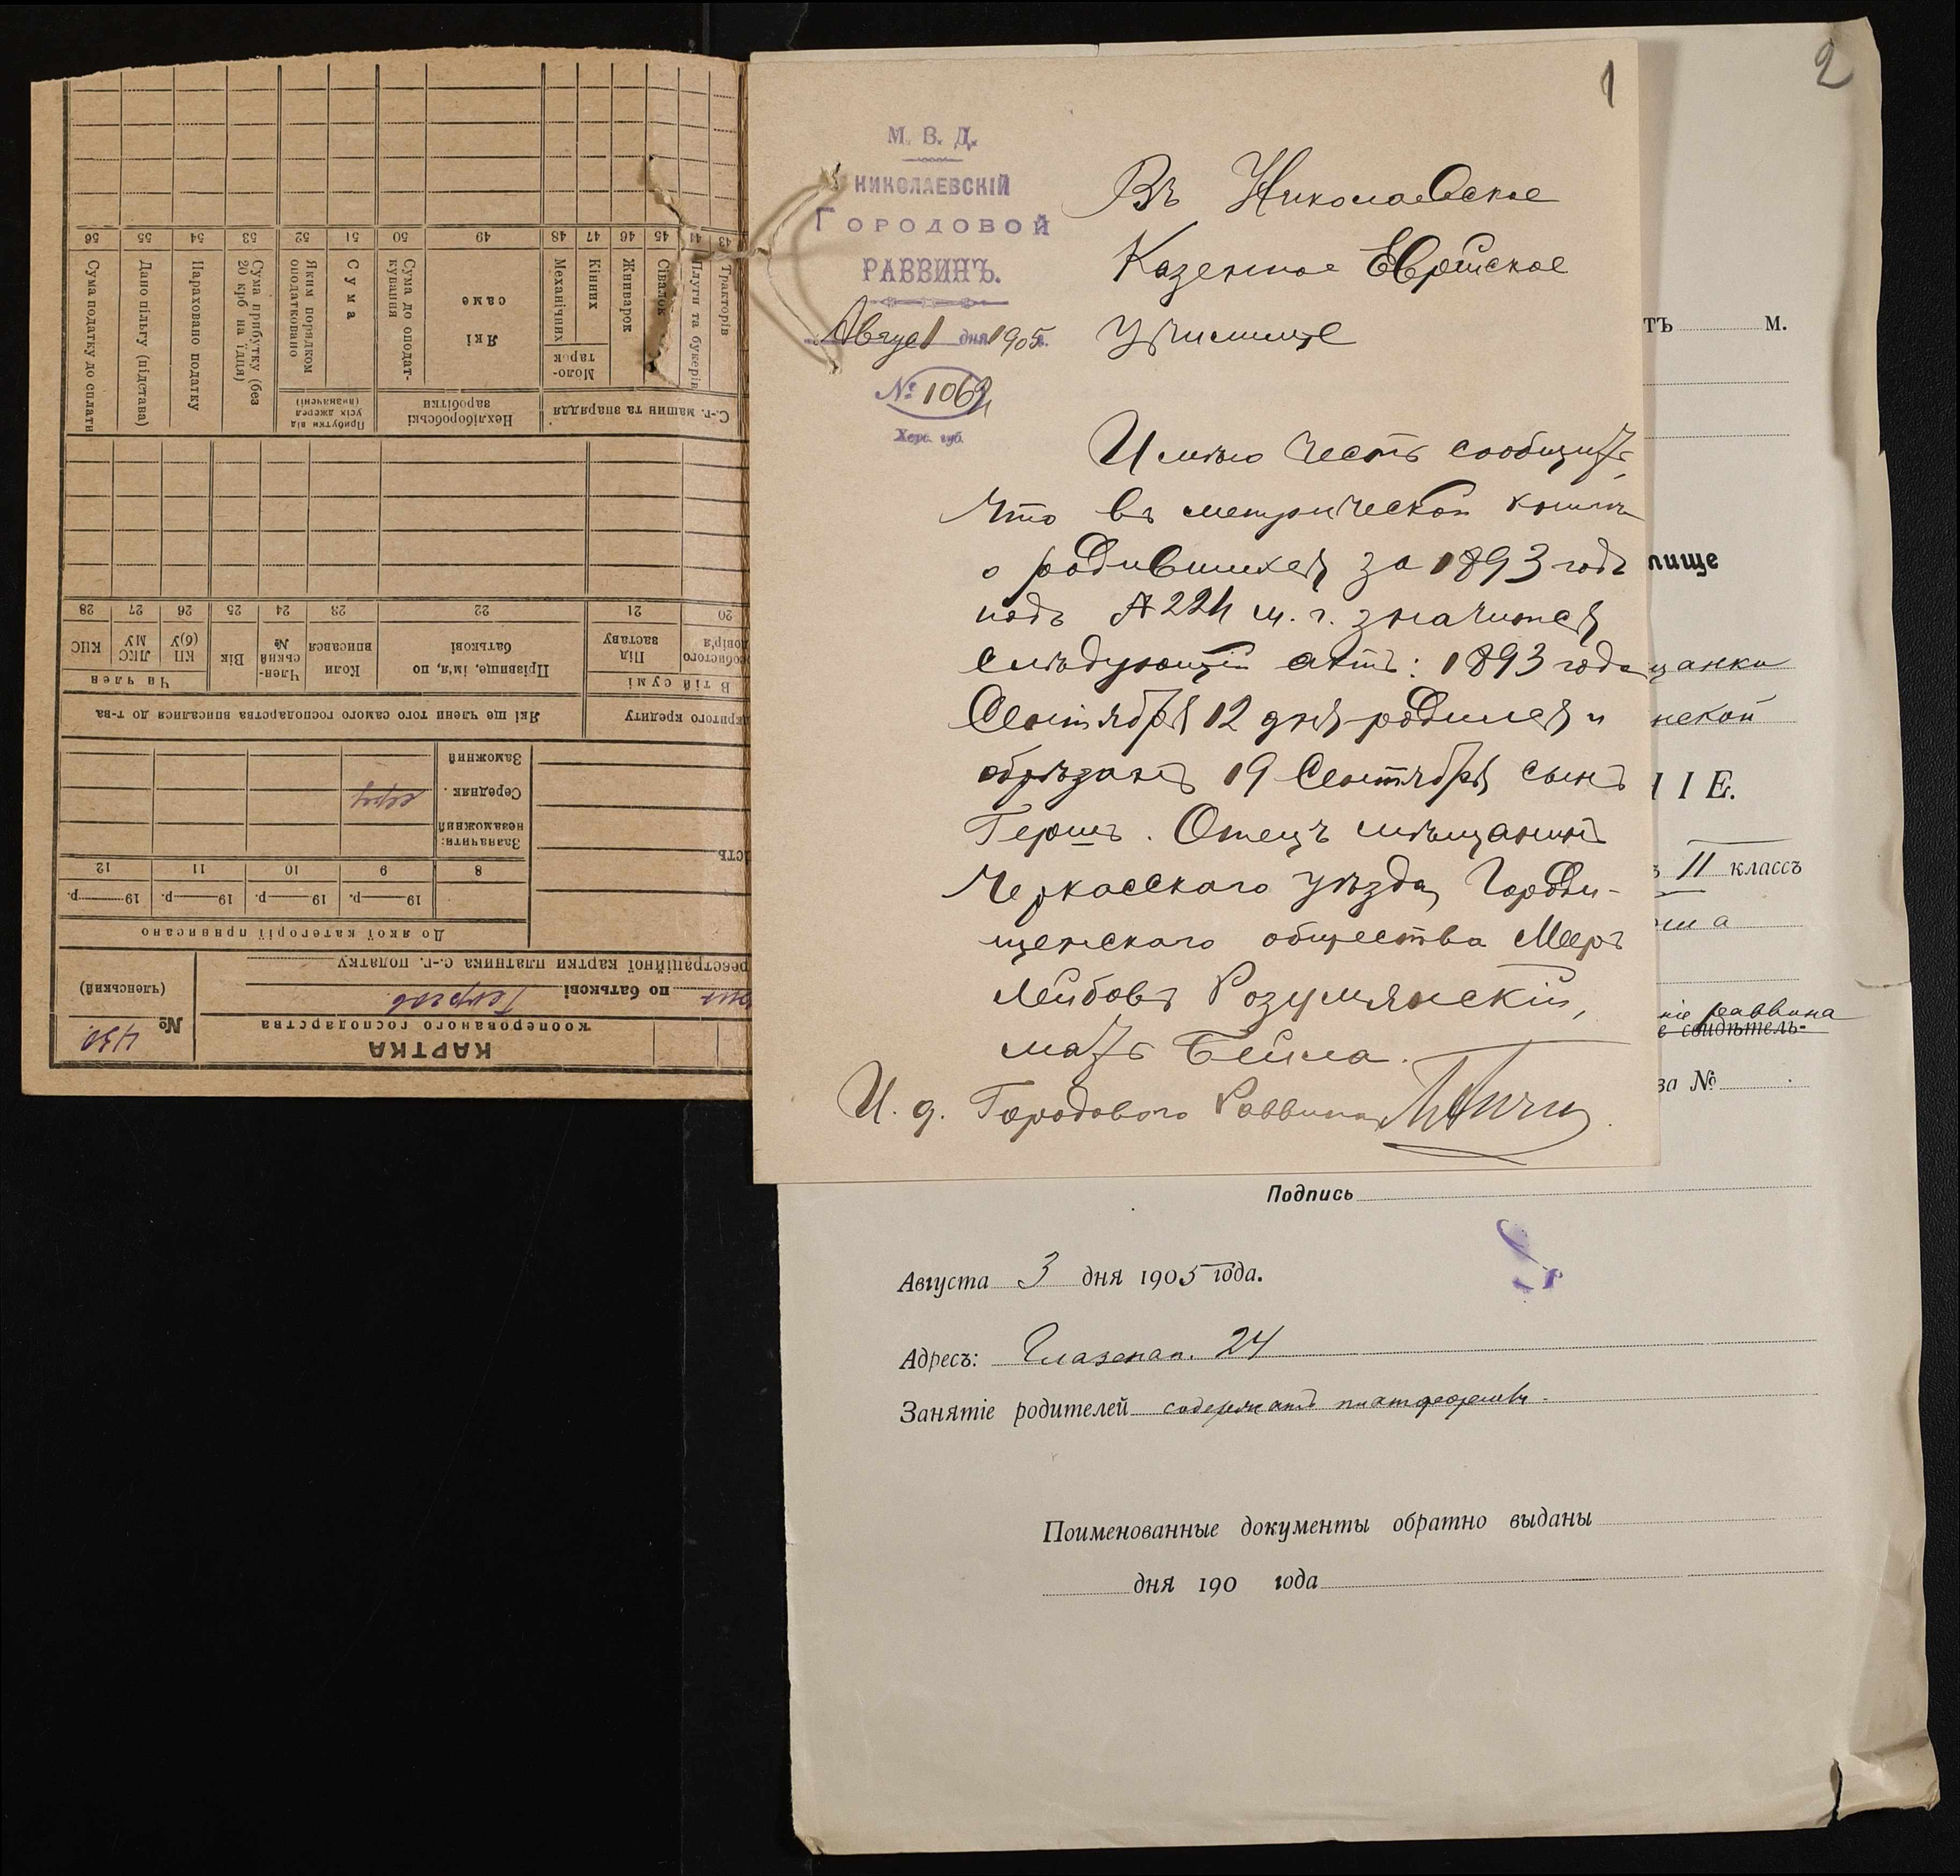 1
2
М. В. Д.
НИКОЛАЕВСКІЙ
ГОРОДОВОЙ
РАВВИНЪ.
Август 1 дня 1905 г.
№ 1062
Херс. губ.
Въ Николаевское
Казенное Еврейское
Училище
Имѣю честь сообщить,
что въ метрической книгѣ
о родившихся за 1893 годъ
подъ № 224 м. г. значится
слѣдующій актъ: 1893 года
Сентября 12 дня родился и
обрѣзанъ 19 Сентября сынъ
Гершъ. Отецъ мѣщанинъ
Черкасскаго уѣзда, Городи-
щенскаго общества Мееръ
Лейбовъ Розумянскій,
мать Бейла.
И. д. Городового Раввина
тъ М.
лище
щанки
нской
НІЕ.
ъ II классъ
рша
ніе раввина
е свидѣтель-
за №
Подпись
Августа 3 дня 1905 года.
Адресъ: Глазенап. 24
Занятіе родителей содержатъ платформы.
Поименованные документы обратно выданы
дня 190 года
КАРТКА
кооперованого господарства
№ 430
(членський)
по батькові
реєстраційної картки платника с.-г. податку
До якої категорії приписано
19 р. 19 р. 19 р. 19 р.
8 9 10 11 12
Зазначити:
незаможний
Середняк серед
Заможний
Які ще члени того самого господарства вписалися до т-ва
критого кредиту
В тій сумі
особистого довір'я
Під заставу
Прізвище, ім'я, по батькові
Коли вписався
Член-ський №
Вік
Чи член
КП (б)У
ЛКСМУ
КПС
20 21 22 23 24 25 26 27 28
С.-г. машин та знаряддя
Нехліборобські заробітки
Прибутки від усіх джерел (визначені)
Тракторів
Плуги та букерів
Сівалок
Жниварок
Кінних
Механічних
Моло-тарок
Які саме
Сума до оподат-кування
Сума
Яким порядком оподатковано
Сума прибутку (без 20 крб на їдця)
Нараховано податку
Дано пільгу (підстава)
Сума податку до сплати
43 44 45 46 47 48 49 50 51 52 53 54 55 56